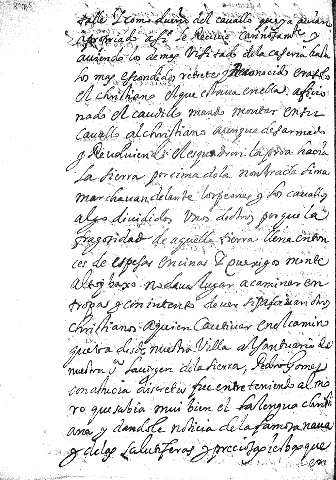 talle Y como dueño del cavallo que ya
apropiado a si le recivio
aviendo los demas visitado de la caseria hasta
los mas escondidos retretes Y conocido era solo
el christiano el que estava en ella, aficio
nado el caudillo mando montar en su
cavallo al christiano aunque desarmado
y rebolviendo el esquadron la
la sierra por cima de la nombrada sima
marchavan delante los peones y los cavallos
algo divididos Unos de otros porque la
fragosidad de aquella sierra llena enton
ces de espesas encinas Y monte
alto y baxo no dava lugar a caminar en
tropas y con intento de ver si pasavan otros
christianos a quien Cautivar en el camino
que va desde nuestra Villa al Santuario de
nuestra Sa la virgen de la sierra, Pedro Gomez
con astucia discreta fue entreteniendo al mo
ro que sabia mui bien la lengua christi
ana y dandole noticia de la famosa nava
y de las salutiferas y preciosas que
en